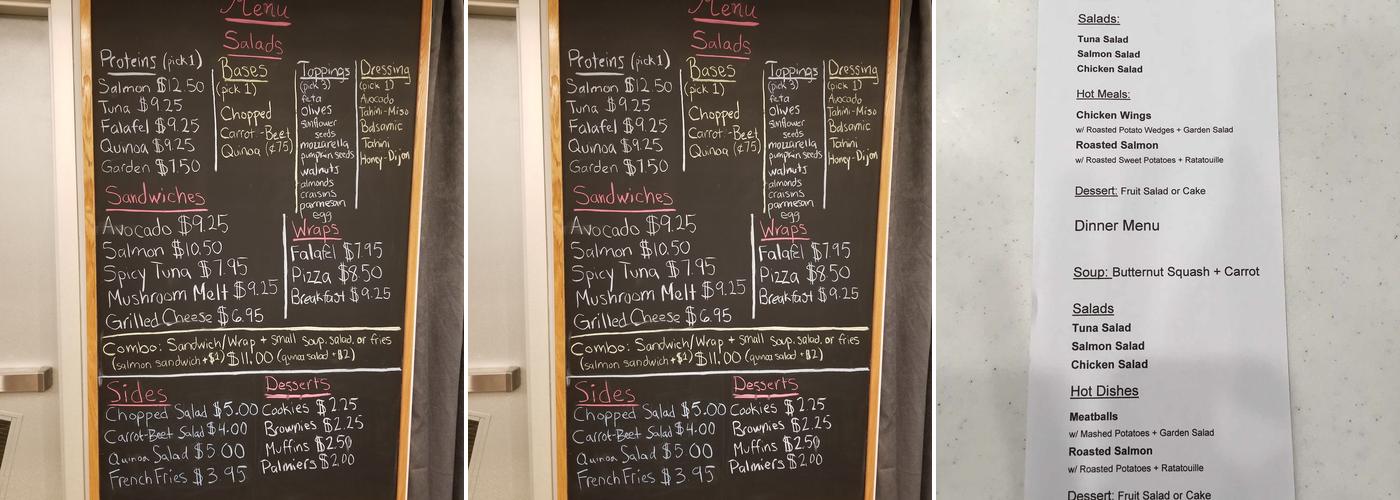 Menu
Salads
Proteins (pick 1)
Salmon $12.50
Tuna $9.25
Falafel $9.25
Quinoa $9.25
Garden $7.50
Bases
(pick 1)
Chopped
Carrot-Beet
Quinoa (¢75)
Toppings
(pick 3)
feta
Olives
sunflower
seeds
mozzarella
pumpkin seeds
walnuts
almonds
craisins
parmeson
egg
Dressing
(pick 1)
Avocado
Tahini-Miso
Balsamic
Tahini
Honey-Dijon
Sandwiches
Avocado $9.25
Salmon $10.50
Spicy Tuna $7.95
Mushroom Melt $9.25
Grilled Cheese $6.95
Wraps
Falafel $7.95
Pizza $8.50
Breakfast $9.25
Combo: Sandwich/Wrap + small soup, salad, or fries
(salmon sandwich +$1) $11.00 (quinoa salad +$2)
Sides
Chopped Salad $5.00
Carrot-Beet Salad $4.00
Quinoa Salad $5.00
French Fries $3.95
Desserts
Cookies $2.25
Brownies $2.25
Muffins $2.50
Palmiers $2.00
Menu
Salads
Proteins (pick 1)
Salmon $12.50
Tuna $9.25
Falafel $9.25
Quinoa $9.25
Garden $7.50
Bases
(pick 1)
Chopped
Carrot-Beet
Quinoa (¢75)
Toppings
(pick 3)
feta
Olives
sunflower
seeds
mozzarella
pumpkin seeds
walnuts
almonds
craisins
parmeson
egg
Dressing
(pick 1)
Avocado
Tahini-Miso
Balsamic
Tahini
Honey-Dijon
Sandwiches
Avocado $9.25
Salmon $10.50
Spicy Tuna $7.95
Mushroom Melt $9.25
Grilled Cheese $6.95
Wraps
Falafel $7.95
Pizza $8.50
Breakfast $9.25
Combo: Sandwich/Wrap + small soup, salad, or fries
(salmon sandwich +$1) $11.00 (quinoa salad +$2)
Sides
Chopped Salad $5.00
Carrot-Beet Salad $4.00
Quinoa Salad $5.00
French Fries $3.95
Desserts
Cookies $2.25
Brownies $2.25
Muffins $2.50
Palmiers $2.00
Salads:
Tuna Salad
Salmon Salad
Chicken Salad
Hot Meals:
Chicken Wings
w/ Roasted Potato Wedges + Garden Salad
Roasted Salmon
w/ Roasted Sweet Potatoes + Ratatouille
Dessert: Fruit Salad or Cake
Dinner Menu
Soup: Butternut Squash + Carrot
Salads
Tuna Salad
Salmon Salad
Chicken Salad
Hot Dishes
Meatballs
w/ Mashed Potatoes + Garden Salad
Roasted Salmon
w/ Roasted Potatoes + Ratatouille
Dessert: Fruit Salad or Cake